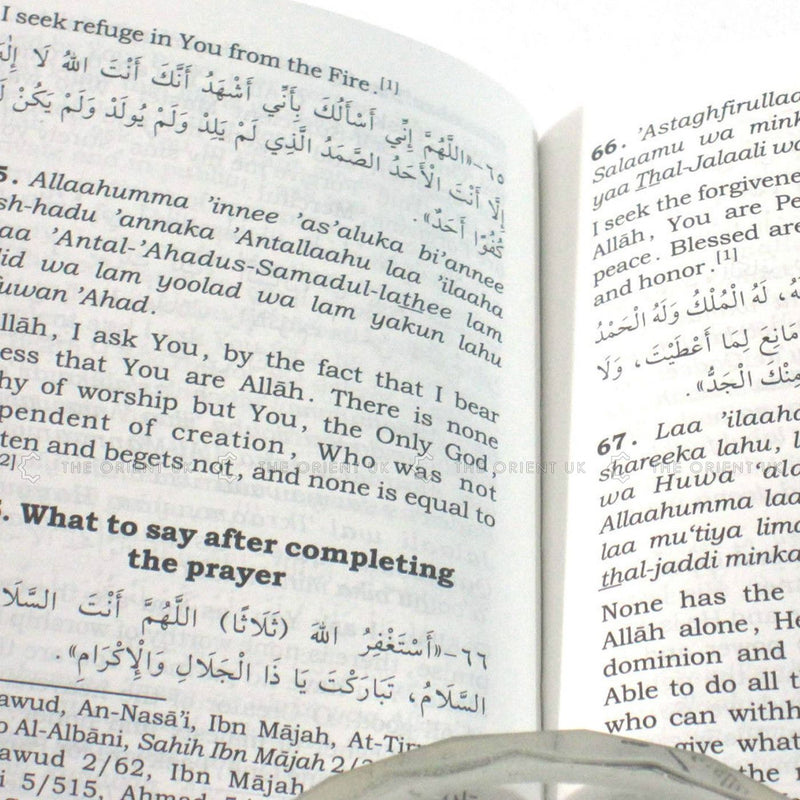 I seek refuge in You from the Fire.[1]
٦٥-«اللَّهُمَّ إِنِّي أَسْأَلُكَ بِأَنِّي أَشْهَدُ أَنَّكَ أَنْتَ اللهُ لَا إِلَهَ
إِلَّا أَنْتَ الْأَحَدُ الصَّمَدُ الَّذِي لَمْ يَلِدْ وَلَمْ يُولَدْ وَلَمْ يَكُنْ
كُفُوًا أَحَدٌ».
5. Allaahumma 'innee 'as'aluka bi'annee
sh-hadu 'annaka 'Antallaahu laa 'ilaaha
aa 'Antal-'Ahadus-Samadul-lathee lam
lid wa lam yoolad wa lam yakun lahu
fuwan 'Ahad.
llāh, I ask You, by the fact that I bear
ess that You are Allāh. There is none
hy of worship but You, the Only God,
pendent of creation, Who was not
tten and begets not, and none is equal to
2]
THE ORIENT UK THE ORIENT UK THE ORIENT UK THE ORIENT UK
. What to say after completing
the prayer
٦٦-«أَسْتَغْفِرُ اللهَ (ثَلَاثًا) اللَّهُمَّ أَنْتَ السَّلَا
السَّلَامُ، تَبَارَكْتَ يَا ذَا الْجَلَالِ وَالْإِكْرَامِ».
awud, An-Nasā'i, Ibn Mājah, At-Tir
o Al-Albāni, Sahih Ibn Mājah 2/
awud 2/62, Ibn Mājah
i 5/515, Ahmad
66. 'Astaghfirullaa
Salaamu wa mink
yaa Thal-Jalaali wa
I seek the forgivene
Allāh, You are Pe
peace. Blessed are
and honor.[1]
لَهُ الْمُلْكُ وَلَهُ الْحَمْدُ
مَانِعَ لِمَا أَعْطَيْتَ، وَلَا
مِنْكَ الْجَدُّ».
67. Laa 'ilaaha
shareeka lahu, l
wa Huwa 'ala
Allaahumma laa
laa mu'tiya lima
thal-jaddi minka
None has the
Allāh alone, He
dominion and
Able to do all t
who can withh
give what
the